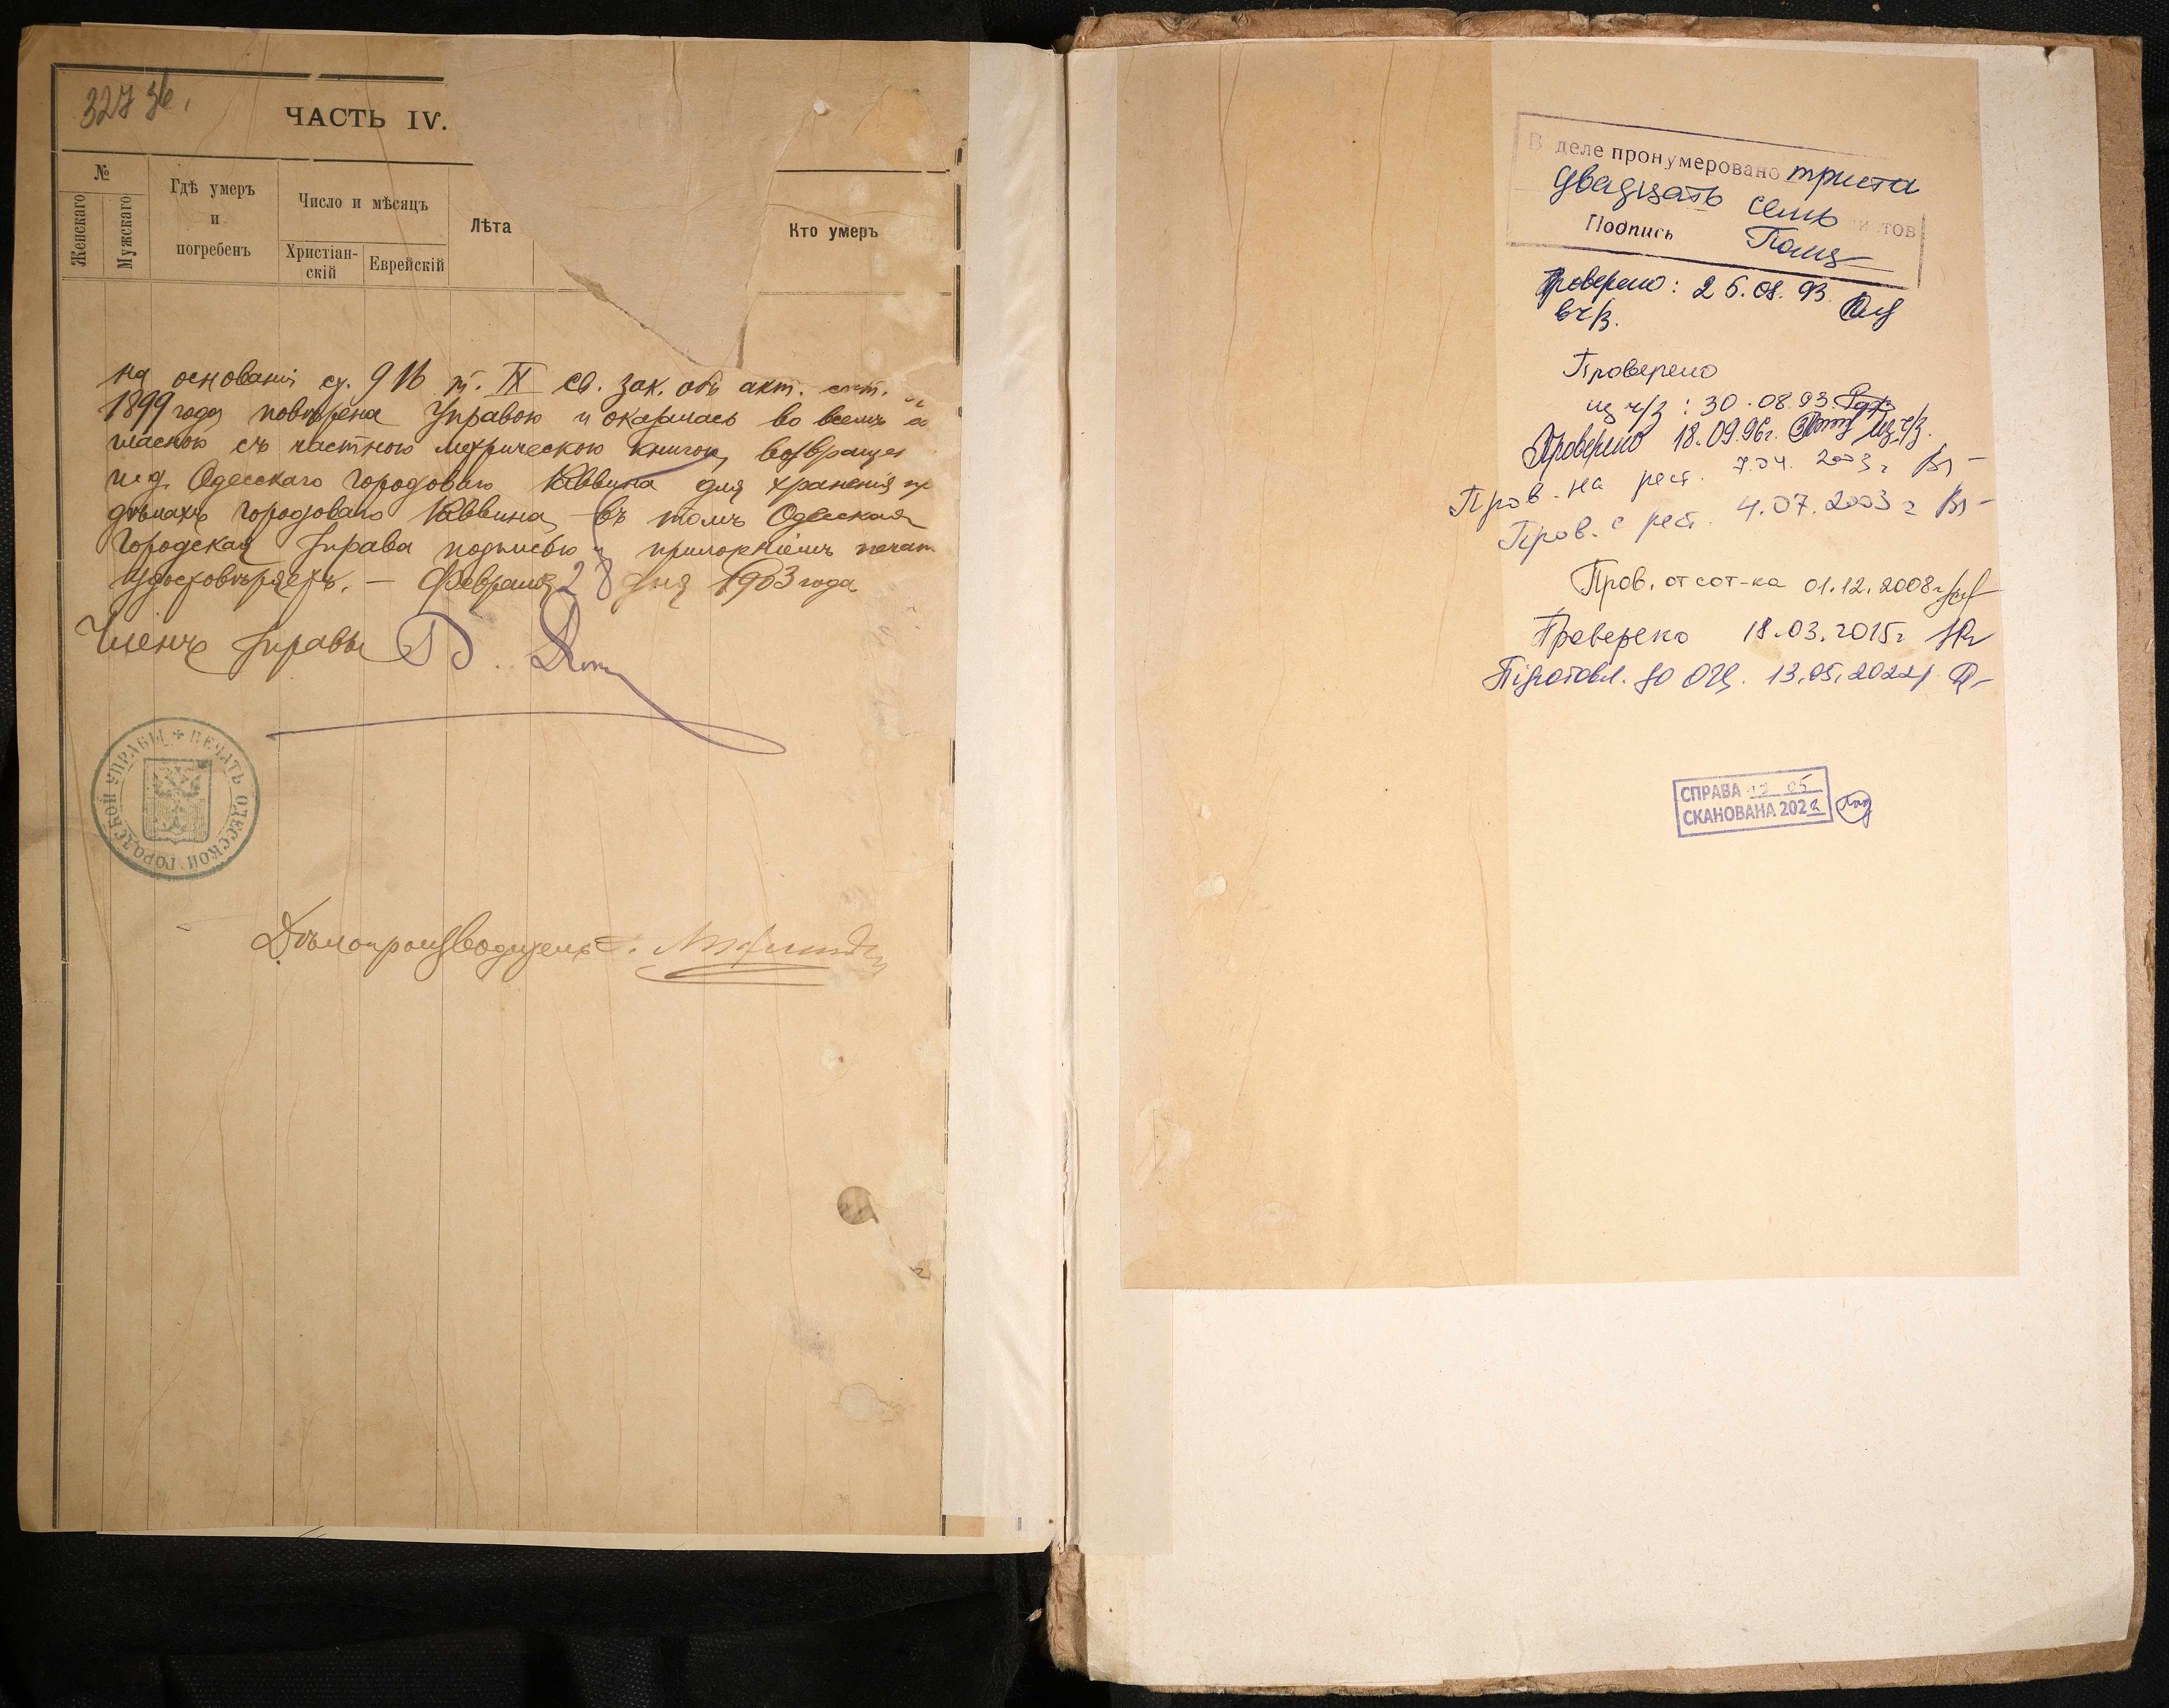 327 зв.
ЧАСТЬ IV.
№
Женскаго
Мужскаго
Гдѣ умеръ
и
погребенъ
Число и мѣсяцъ
Христіан-
скій
Еврейскій
Лѣта
Кто умеръ
на основаніи ст. 916 т. IX св. зак. объ акт. сост.
1899 года повѣрена Управою и оказалась во всемъ со
гласною съ частною метрическою книгою, возвращен
Одесскаго Городового Раввина для храненія пр
дѣлахъ Городового Раввина, въ томъ Одесская
Городская Управа подписью и приложеніемъ печат
удостовѣряетъ. — Февраля 28 дня 1903 года
Членъ Управы
ПЕЧАТЬ ОДЕССКОЙ ГОРОДСКОЙ УПРАВЫ
Дѣлопроизводитель
В деле пронумеровано триста
двадцать семь листов
Подпись
Проверено: 26.08.93.
в ч/з.
Проверено
из ч/з: 30.08.93.
Проверено 18.09.96г. из ч/з.
Пров. на рест. 7.04.2003г
Пров. с рест. 4.07.2003г
Пров. от сот-ка 01.12.2008г
Проверено 18.03.2015г
Підготовл. до ОЦ. 13.05.2022р
СПРАВА 05
СКАНОВАНА 2022